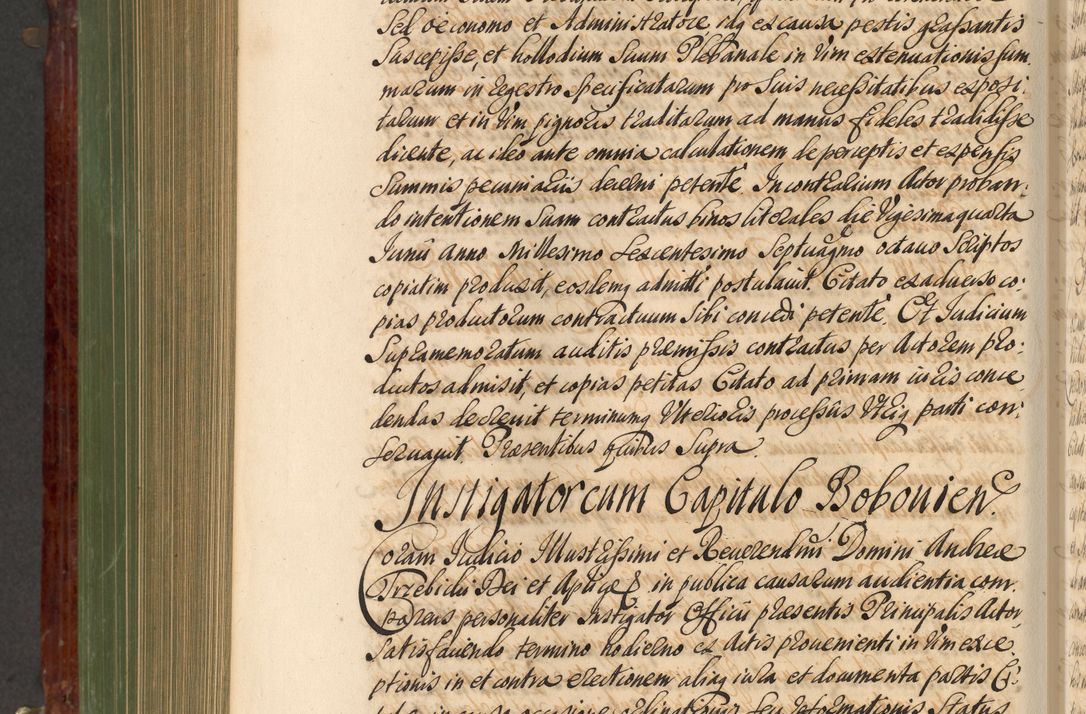 Sed oeconomo et Administratore idq ex causa pestis grassantis
Suscepisse, et hollodium Suum Plebanale in Vim extenuationis sum,
marum in regestro Specificatarum pro Suis necessitatibus exposi,
tarum et in Vim pignoris traditarum ad manus fideles tradidisse
dicente, ac ideo ante omnia calculationem de perceptis et expensis
Summis pecuniariis decerni petente. In contrarium Actor proban,
do intentionem Suam contractus binos literales die Vigesima quarta
Junii Anno Millesimo Sexcentesimo Septuagmo octauo Scriptos
copiatim produxit, eosdemq admitti postulauit. Citato ex aduerso co,
pias productorum contractuum Sibi concedi petente. Et Judicium
Supramemoratum auditis præmissis contractus per Actorem pro,
ductos admisit, et copias petitas Citato ad primam iuris conce,
dendas decreuit terminumq Vlterioris processus Vtriq parti con,
seruauit. Præsentibus quibus Supra
Instigator cum Capitulo Bobouien.
Coram Judicio Illustrissimi et Reuerendmi Domini Andreæ
Trzebicki Dei et Aplicæ & in publica causarum audientia com,
parens personaliter Instigator Officii præsentis Principalis Actor,
Satisfaciendo termino hodierno ex Actis prouenienti in Vim exce,
ptionis in et contra erectionem aliaq iura et documenta partis Ci,